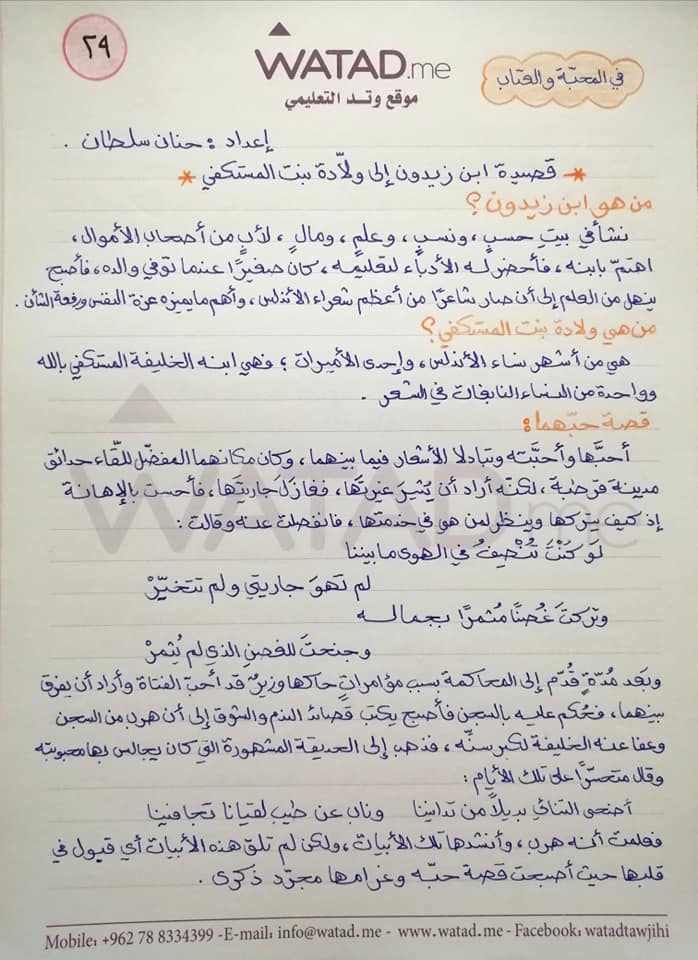 ٢٩
WATAD.me
موقع وتد التعليمي
في المحبّة والعتاب
إعداد : حنان سلطان .
* قصيدة ابن زيدون إلى ولّادة بنت المستكفي *
من هو ابن زيدون ؟
نشأ في بيتِ حسبٍ ، ونسبٍ ، وعلمٍ ، ومالٍ ، لأبٍ من أصحاب الأموال ،
اهتمّ بابنه ، فأحضر له الأدباء لتعليمه ، كان صغيرًا عندما توفي والده ، فأصبح
ينهل من العلم إلى أن صار شاعرًا من أعظم شعراء الأندلس ، وأهم ما يميزه عزة النفس ورفعة الشأن .
من هي ولادة بنت المستكفي ؟
هي من أشهر نساء الأندلس ، وإحدى الأميرات ؛ فهي ابنه الخليفة المستكفي بالله
وواحدة من النساء النابغات في الشعر .
قصة حبّهما :
أحبّها وأحبّته وتبادلا الأشعار فيما بينهما ، وكان مكانهما المفضّل للقّاء حدائق
مدينة قرطبة ، لكنّه أراد أن يُثيرَ غيرتها ، فغازلَ جاريتها ، فأحست بالإهانة
إذ كيف يتركها وينظر لمن هو في خدمتها ، فانفصلت عنه وقالت :
لو كنْتَ تُنْصِفُ في الهوى ما بيننا
لم تهوَ جاريتي ولم تتخيّرْ
وتركتَ غُصنًا مُثمرًا بجماله
وجنحتَ للغصن الذي لم يُثمرْ
وبعد مُدّةٍ قُدّم إلى المحاكمة بسبب مؤامراتٍ حاكها وزيرٌ قد أحبّ الفتاة وأراد أن يفرق
بينهما ، فحُكم عليه بالسجن فأصبح يكتب قصائد الندم والشوق إلى أن هرب من السجن
وعفا عنه الخليفة لكبر سنّه ، فذهب إلى الحديقة المشهورة التي كان يجالس بها محبوبته
وقال متحسّرًا على تلك الأيام :
أضحى التنائي بديلًا من تدانينا وناب عن طيب لقيانا تجافينا
فعلمت أنه هرب ، وأنشدها تلك الأبيات ، ولكن لم تلق هذه الأبيات أي قبول في
قلبها حيث أصبحت قصة حبّه وغرامها مجرّد ذكرى .
Mobile: +962 78 8334399 -E-mail: info@watad.me - www.watad.me - Facebook: watadtawjihi